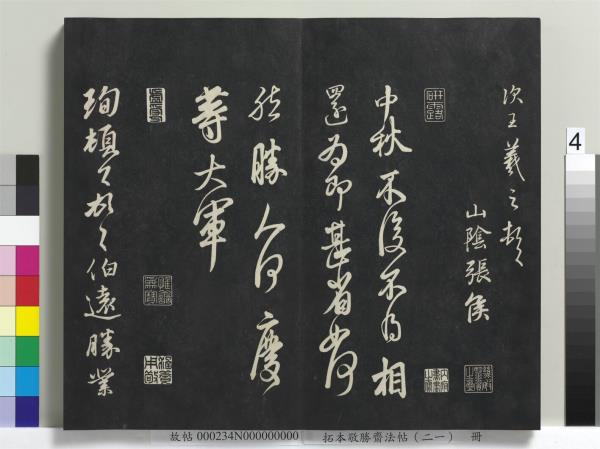 次王羲之頓首
山陰張侯
中秋不復不得相
還為即甚省如何
然勝人何慶
等大軍
珣頓首頓首伯遠勝業
4
故帖 000234N000000000 拓本敬勝齋法帖（二一） 冊